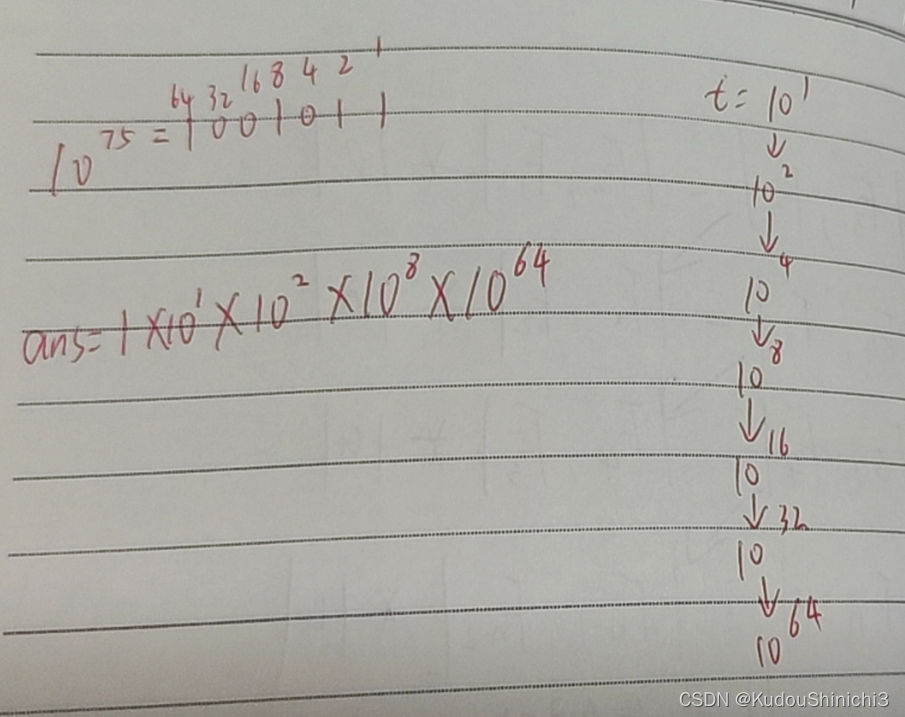 64 32 16 8 4 2 1
10^75 = 1 0 0 1 0 1 1
ans= 1 ×10^1 ×10^2 ×10^8 ×10^64
t= 10^1
↓
10^2
↓
10^4
↓
10^8
↓
10^16
↓
10^32
↓
10^64
CSDN @KudouShinichi3